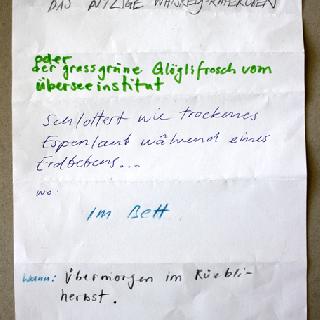 DAS WITZIGE
oder
der grassgrüne Glöglifrosch vom
überseeinstitut
Schlottert wie trockenes
Espenlaub während eines
Erdbebens...
wo:
im Bett
Wann: Übermorgen im Rüebli-
herbst.